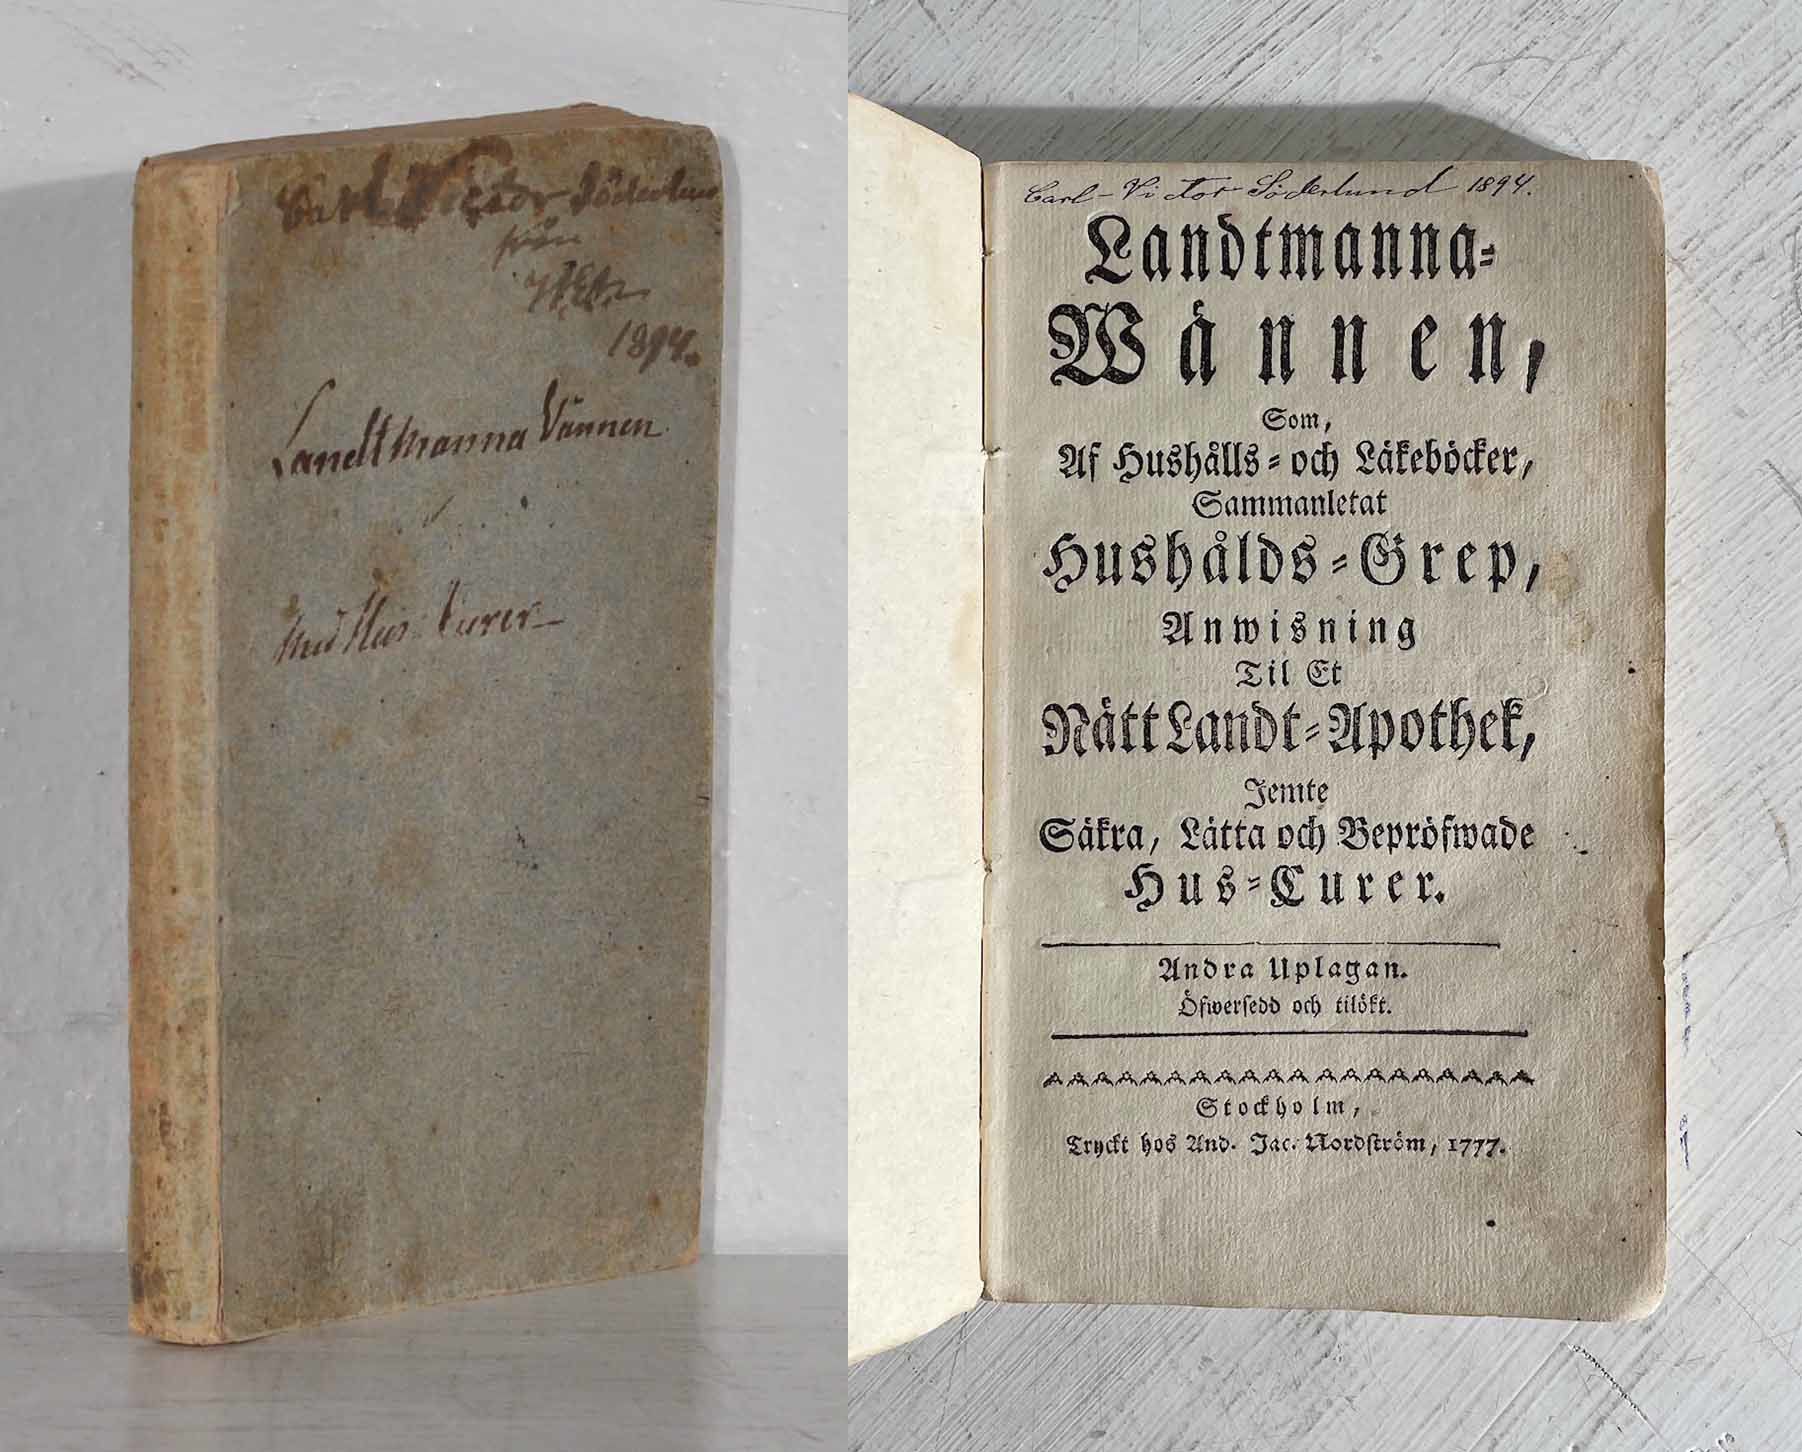 Carl Victor Söderlund
från
1894.
Landtmanna Vännen
med Hus-Curer
Carl-Victor Söderlund 1894.
Landtmanna-
Wännen,
Som,
Af Hushålls-och Läkeböcker,
Sammanletat
Hushålds-Grep,
Anwisning
Til Et
Nätt Landt-Apothek,
Jemte
Säkra, Lätta och Bepröfwade
Hus-Curer.
Andra Uplagan.
Öfwersedd och tilökt.
Stockholm,
Tryckt hos And. Jac. Nordström, 1777.